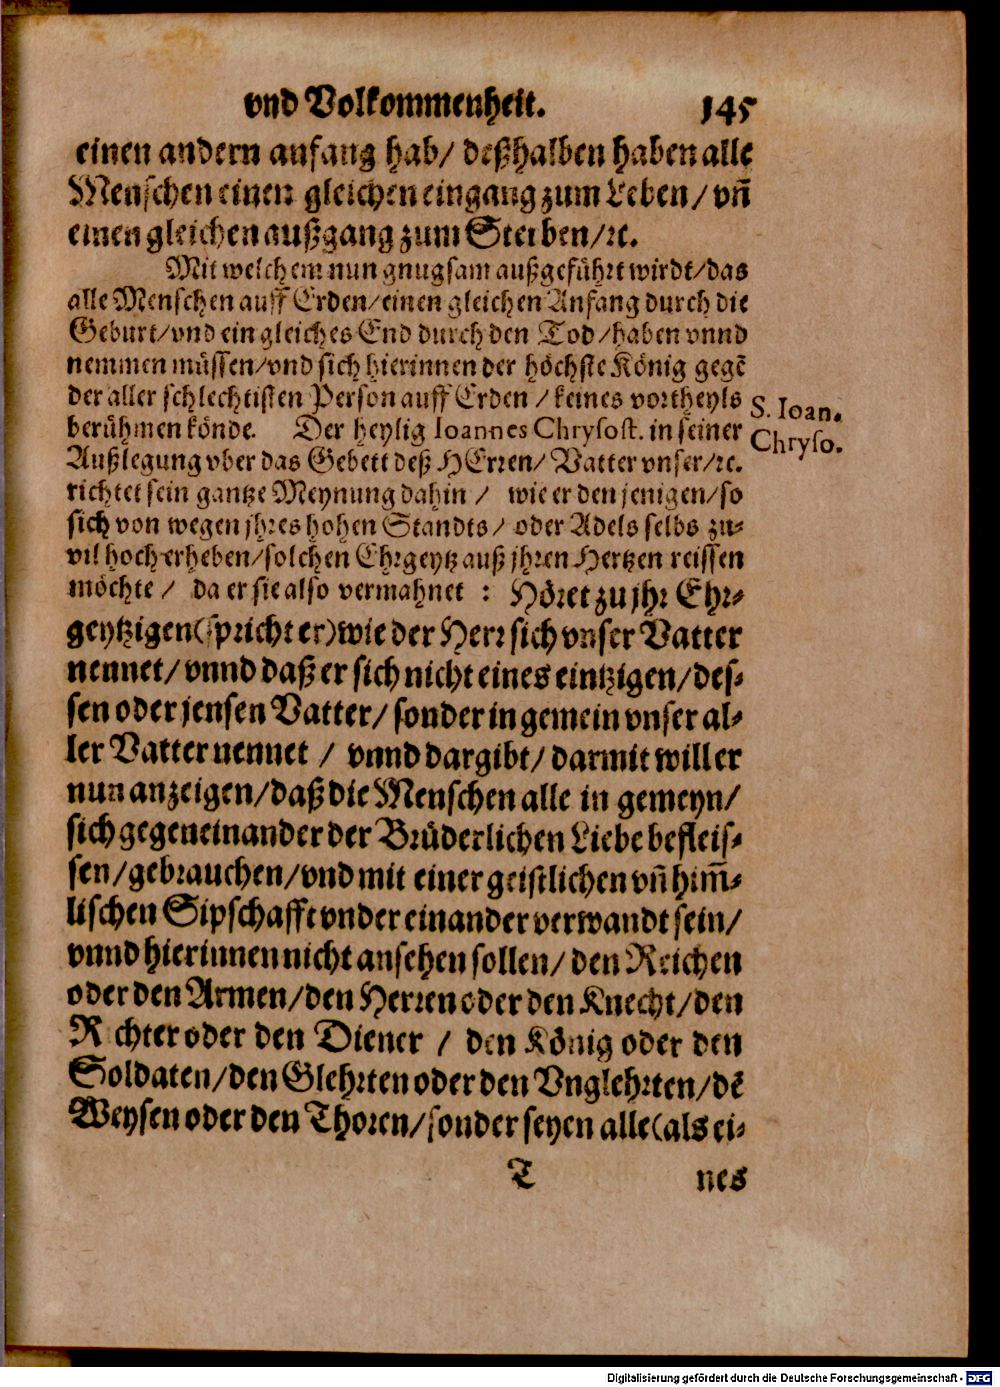 vnd Volkommenheit. 145
einen andern anfang hab/ deßhalben haben alle
Menschen einen gleichen eingang zum Leben/ vn̄
einen gleichen außgang zum Sterben/ ꝛc.
Mit welchem nun gnugsam außgeführt wirdt/ das
alle Menschen auff Erden/ einen gleichen Anfang durch die
Geburt/ vnd ein gleiches End durch den Tod/ haben vnnd
nemmen müssen/ vnd sich hierinnen der höchste König gegē
der aller schlechtisten Person auff Erden / keines vortheyls
berühmen könde. Der heylig Ioannes Chrysost. in seiner
S. Ioan.
Chryso.
Außlegung vber das Gebett deß HErren/ Vatter vnser/ ꝛc.
richtet sein gantze Meynung dahin / wie er den jenigen/ so
sich von wegen jhres hohen Standts/ oder Adels selbs zu-
vil hoch erheben/ solchen Ehrgeytz auß jhren Hertzen reissen
möchte / da er sie also vermahnet : Höret zu jhr Ehr-
geytzigen (spricht er) wie der Herr sich vnser Vatter
nennet/ vnnd daß er sich nicht eines eintzigen/ des-
sen oder jensen Vatter/ sonder in gemein vnser al-
ler Vatter nennet / vnnd dargibt/ darmit will er
nun anzeigen/ daß die Menschen alle in gemeyn/
sich gegeneinander der Brüderlichen Liebe befleis-
sen/ gebrauchen/ vnd mit einer geistlichen vn̄ him̄-
lischen Sipschafft vnder einander verwandt sein/
vnnd hierinnen nicht ansehen sollen/ den Reichen
oder den Armen/ den Herren oder den Knecht/ den
R chter oder den Diener / den König oder den
Soldaten/ den Glehrten oder den Vnglehrten/ dē
Weysen oder den Thoren/ sonder seyen alle (als ei-
T nes
Digitalisierung gefördert durch die Deutsche Forschungsgemeinschaft - DFG